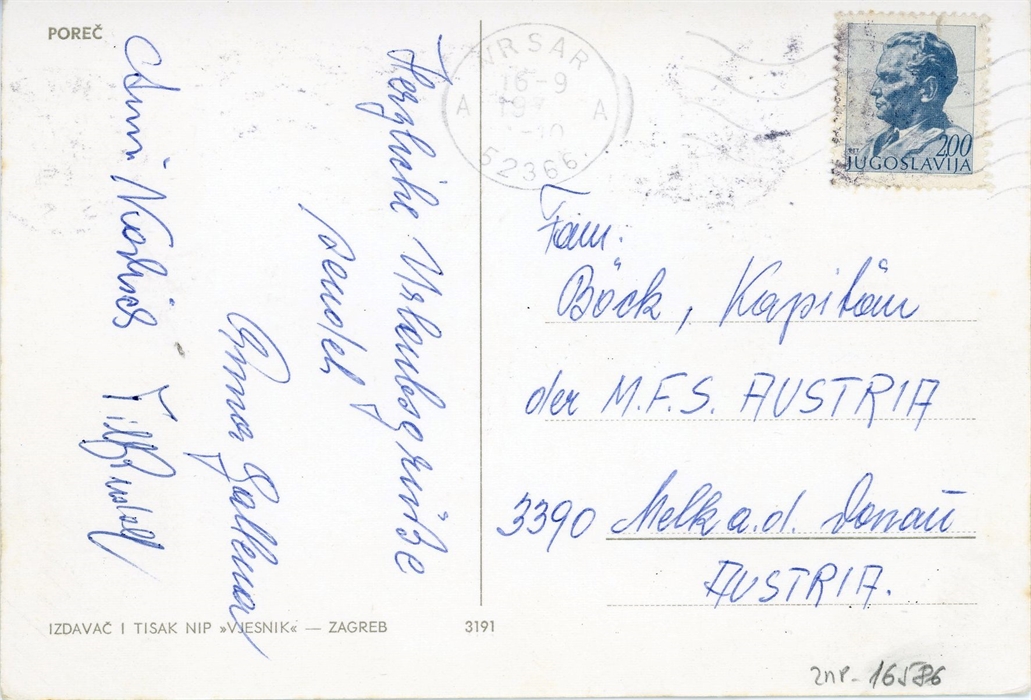 POREČ
Herzliche Urlaubsgrüße
sendet
Erna
VRSAR
16-9
19
A A
52366
200
JUGOSLAVIJA
Fam:
Böck, Kapitän
der M.F.S. AUSTRIA
3390 Melk a.d. Donau
AUSTRIA.
IZDAVAČ I TISAK NIP »VJESNIK« — ZAGREB 3191